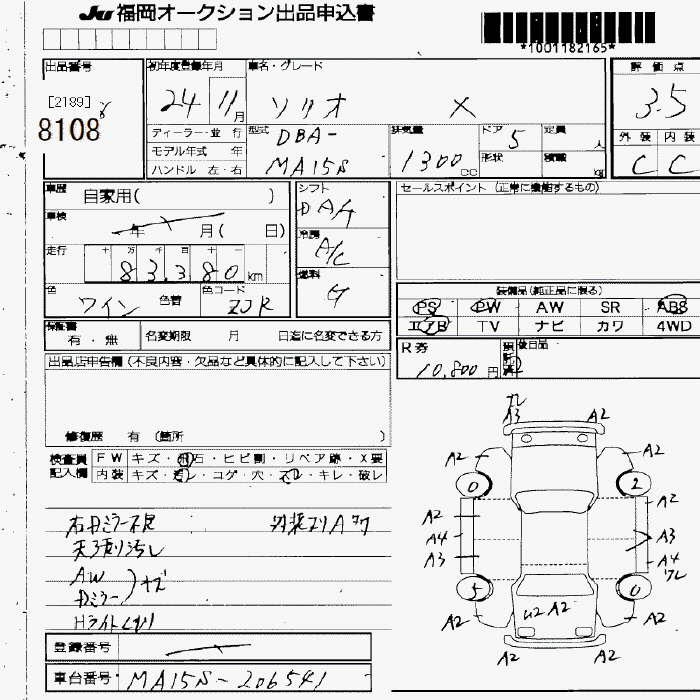 JU 福岡オークション出品申込書
*1001182165*
出品番号
[2189]
8108
初年度登録年月
24 11月
車名・グレード
ソリオ X
評価点
3.5
外装 内装
C C
ディーラー・並行
モデル年式 年
ハンドル 左・右
型式
DBA-
MA15S
排気量
1300cc
ドア 5
形状
定員 人
積載 kg
車歴 自家用( )
車検 年 月( 日)
走行 十 万 千 百 十 一
83,380km
色 ワイン 色替
色コード ZJR
シフト
DAT
冷房
A/C
燃料
G
セールスポイント(正常に機能するもの)
装備品(純正品に限る)
PS PW AW SR ABS
エアB TV ナビ カワ 4WD
保証書 有・無
名変期限 月 日迄に名変できる方
R券
10,800円
預託済
後日品
出品店申告欄(不良内容・欠品など具体的に記入して下さい)
修復歴 有 (箇所 )
検査員記入欄
FW キズ・飛石・ヒビ割・リペア跡・X要
内装 キズ・汚レ・コゲ・穴・スレ・キレ・破レ
右Dミラー不良 外装エリA多
天張り汚レ
AW
Dミラー
キズ
Hライトくもり
登録番号
車台番号 MA15S-206541
ワレ
A3 A2
A2 A2
0 2
A2 A2
A4 A3
A3 A4
ワレ
5 0
A2 U2 A2 A2
A2 A2